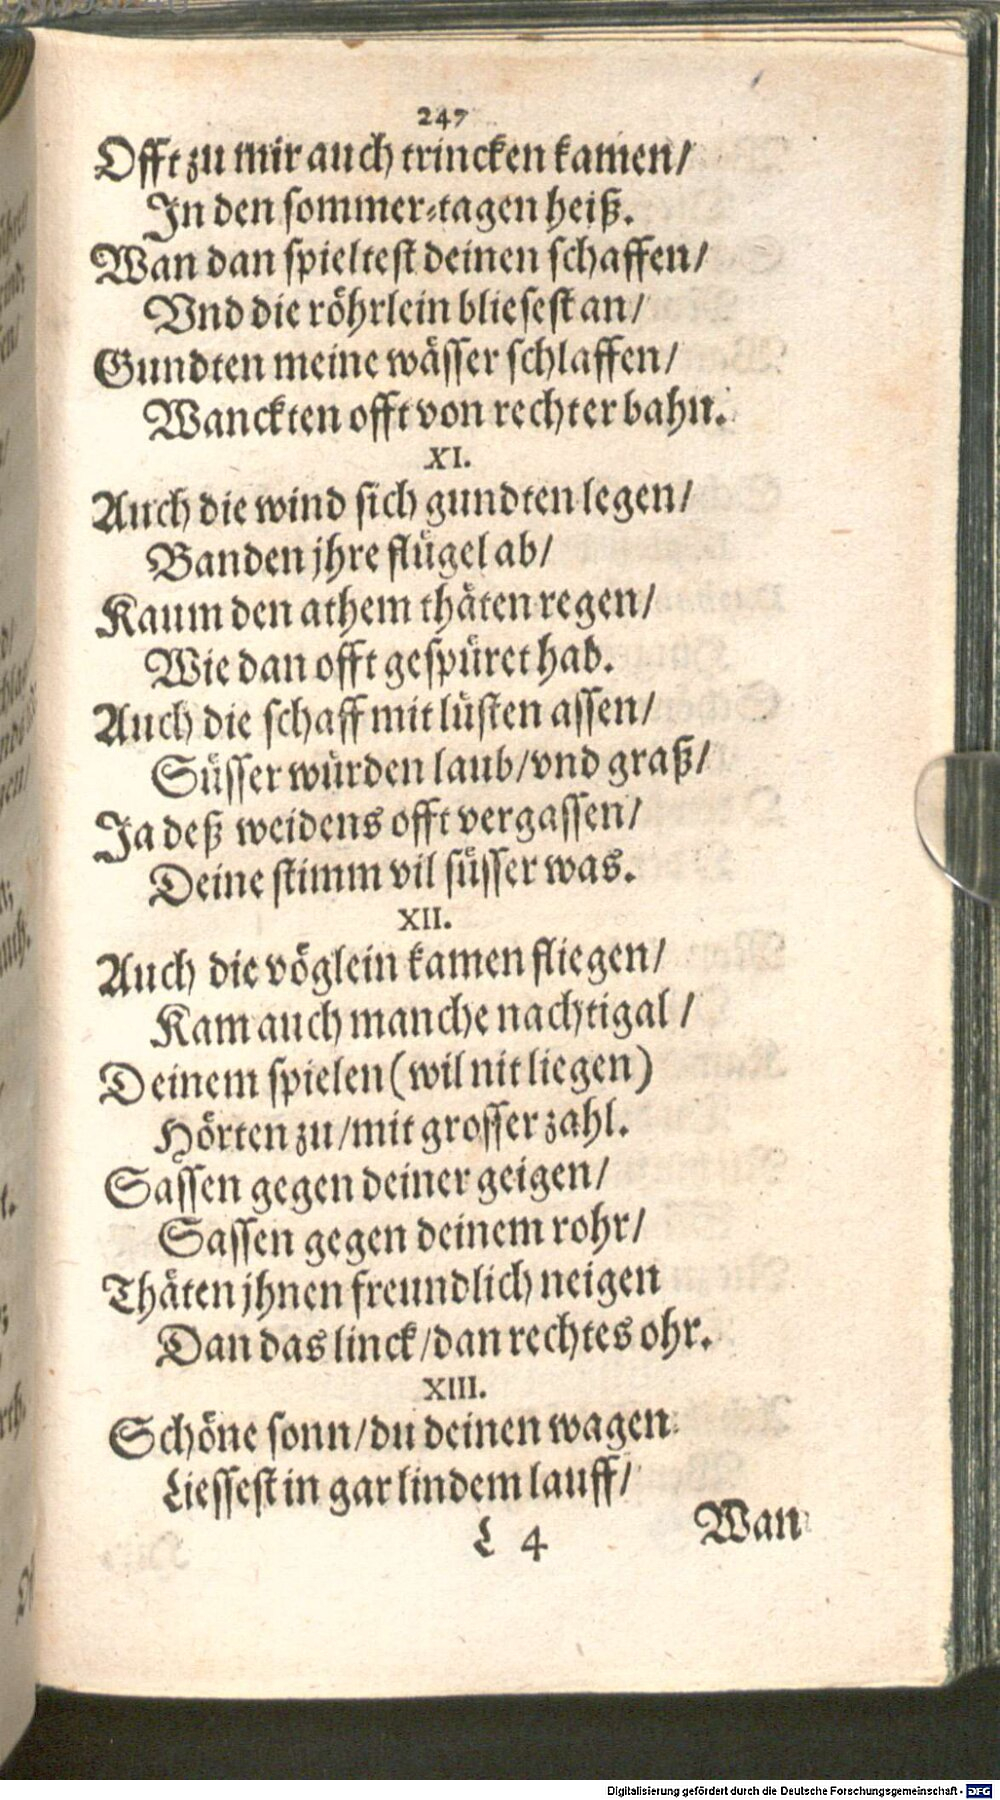 247
Offt zu mir auch trincken kamen/
In den sommer-tagen heiß.
Wan dan spieltest deinen schaffen/
Vnd die röhrlein bliesest an/
Gundten meine wässer schlaffen/
Wanckten offt von rechter bahn.
XI.
Auch die wind sich gundten legen/
Banden jhre flügel ab/
Kaum den athem thäten regen/
Wie dan offt gespüret hab.
Auch die schaff mit lüsten assen/
Süsser würden laub/vnd graß/
Ja deß weidens offt vergassen/
Deine stimm vil süsser was.
XII.
Auch die vöglein kamen fliegen/
Kam auch manche nachtigal/
Deinem spielen (wil nit liegen)
Hörten zu/mit grosser zahl.
Sassen gegen deiner geigen/
Sassen gegen deinem rohr/
Thäten jhnen freundlich neigen
Dan das linck/dan rechtes ohr.
XIII.
Schöne sonn/du deinen wagen
Liessest in gar lindem lauff/
L 4 Wan
Digitalisierung gefördert durch die Deutsche Forschungsgemeinschaft - DFG